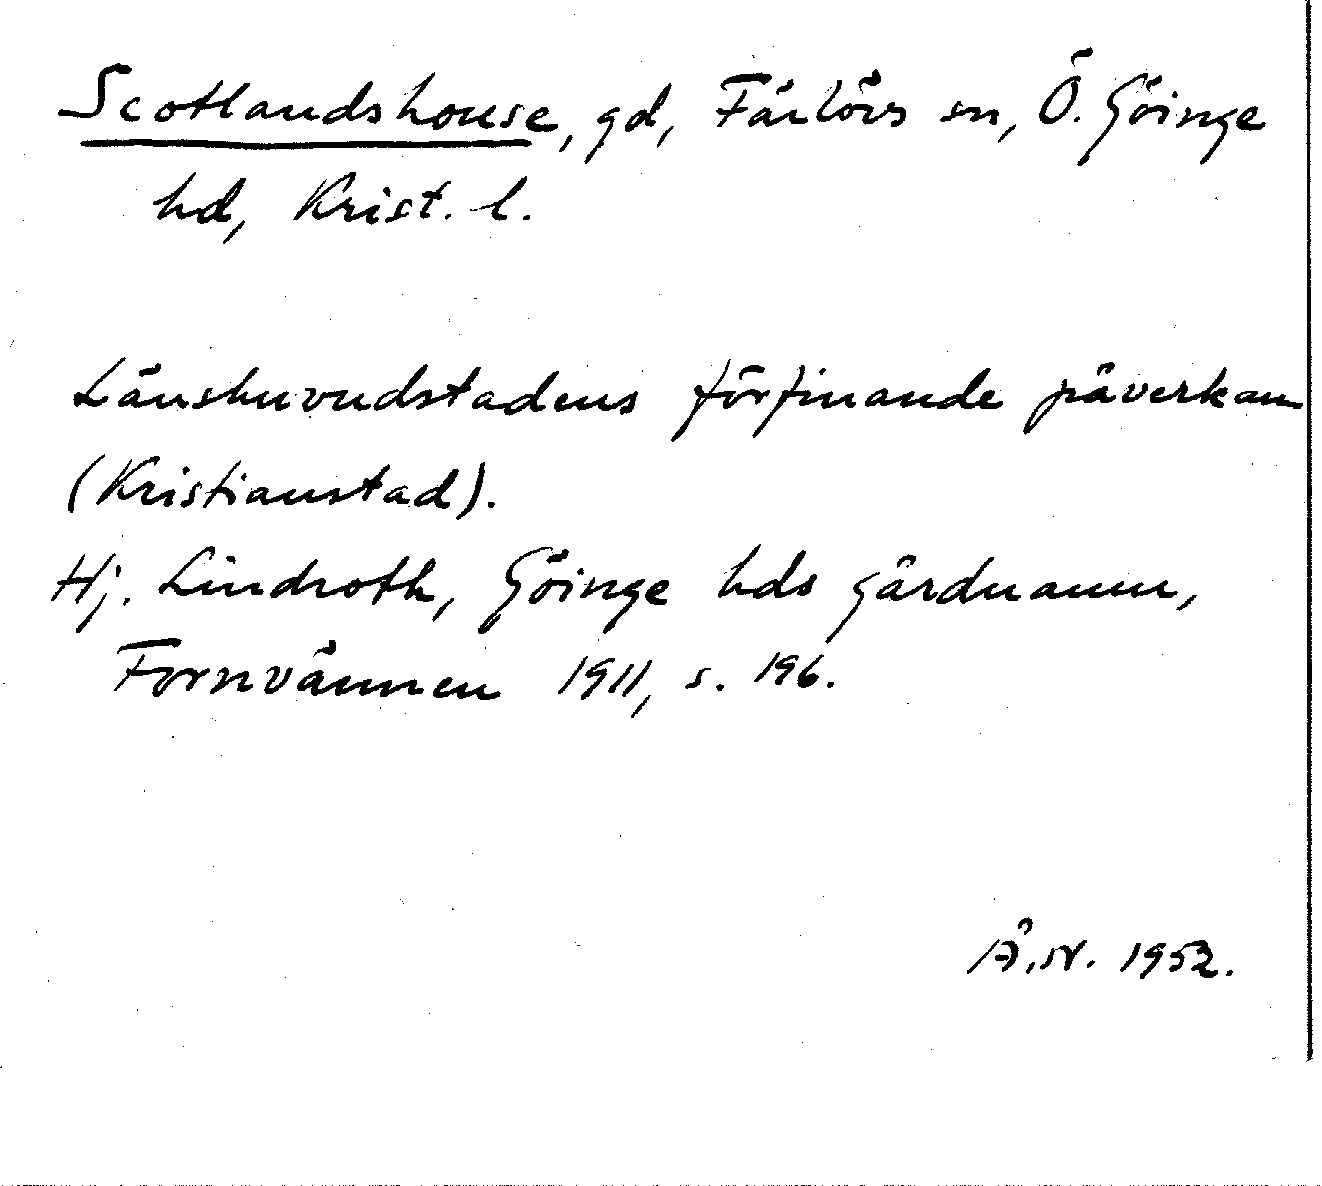 Scotlandshouse, gd, Färlövs sn, Ö. Göinge
hd, Krist. l.
Länshuvudstadens förfinande påverkan
(Kristianstad).
Hj. Lindroth, Göinge hds gårdnamn,
Fornvännen 1911, s. 196.
Å.N. 1952.